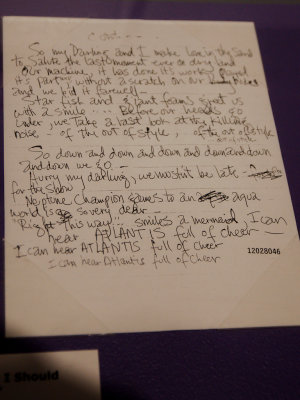 cont - - -
So my Darling and I make love in the Sand
To Salute the last moment ever on dry land
Our machine, it has done its work, played
its part without a scratch on our
and we bid it farewell -
Star fish and giant foams greet us
with a smile ... Before our heads go
under, we take a last look at the killing
noise. of the out of style, of the out of style
So down and down and down and down and down
and down we go -
Hurry my darling, we mustn't be late -
for the show
Neptune Champion games to an aqua
world is so very dear -
"Right this way" smiles a mermaid, I can
hear ATLANTIS full of cheer
I can hear ATLANTIS full of cheer
I can hear Atlantis full of cheer
12028046
I Should